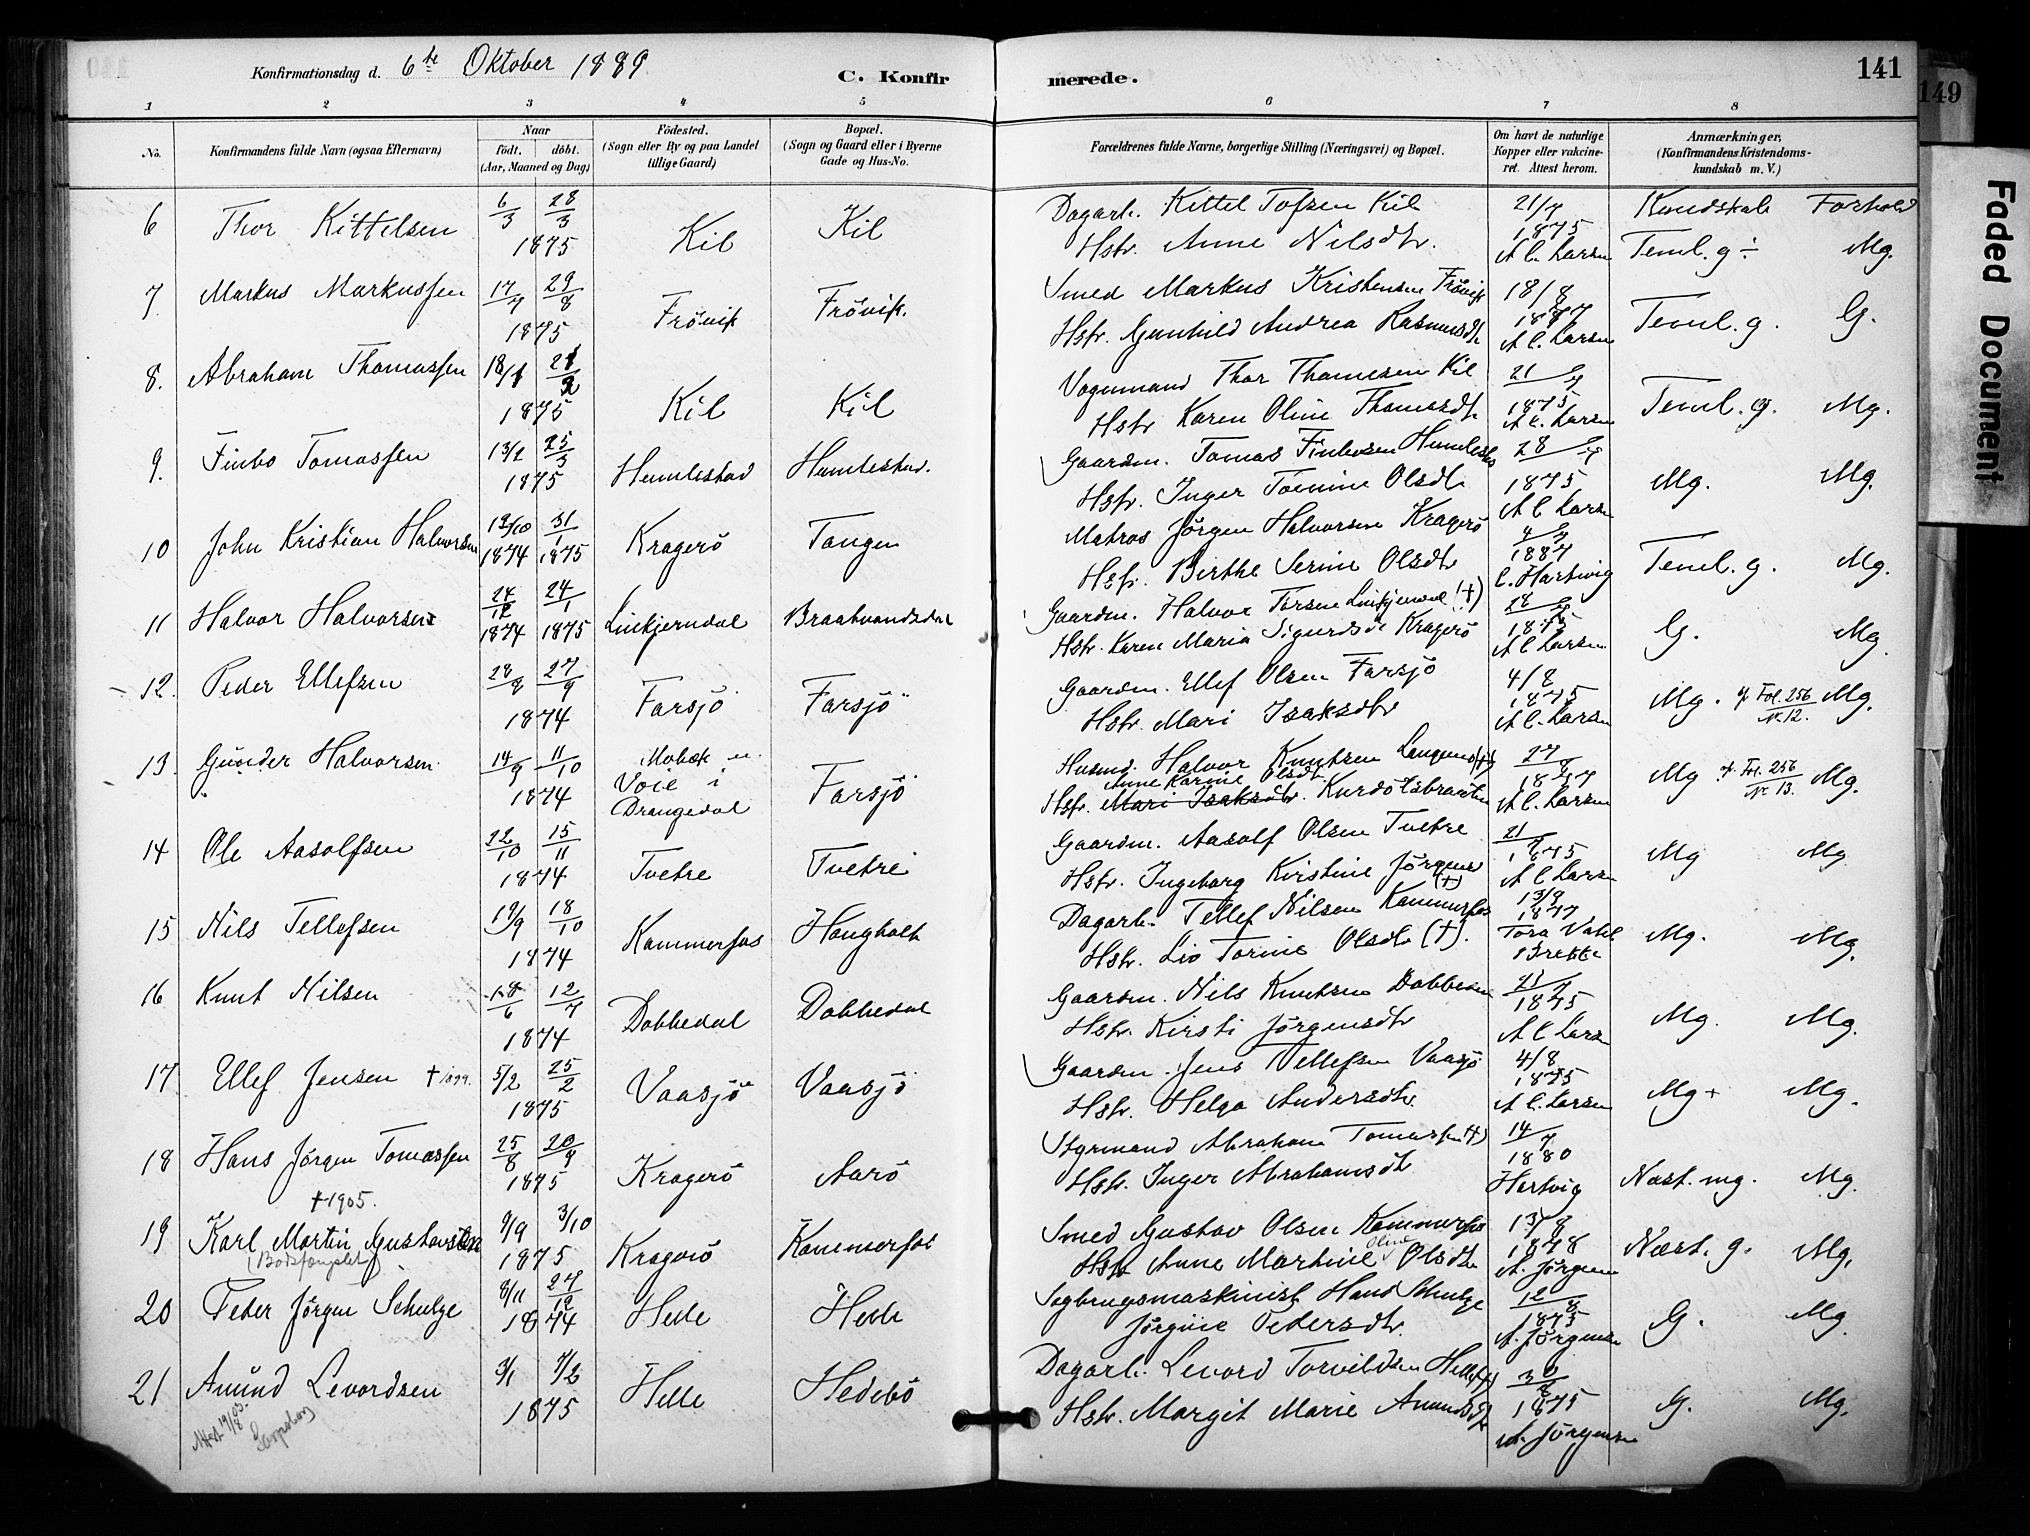 Konfirmationsdag d. 6te Oktober 1889
C. Konfirmerede.
141
149
Faded Document
1 2 3 4 5 6 7 8
No.
Konfirmandens fulde Navn (ogsaa Efternavn)
Naar
födt. döbt.
(Aar, Maaned og Dag)
Födested.
(Sogn eller By og paa Landet
tillige Gaard)
Bopæl.
(Sogn og Gaard eller i Byerne
Gade og Hus-No.
Forældrenes fulde Navne, borgerlige Stilling (Næringsvei) og Bopæl.
Om havt de naturlige
Kopper eller vakcine-
ret. Attest herom.
Anmærkninger,
(Konfirmandens Kristendoms-
kundskab m. V.)
Kundskab Forhold
6 Thor Kittelsen 6/3 28/3 1875 Kil Kil Dagarb. Kittel Tofsen Kil
Hstr. Anne Nilsdtr. 21/7 1875 A C. Larsen Teml. g ÷ Mg.
7. Markus Markussen 17/7 29/8 1875 Frövik Frövik. Smed Markus Kristensen Frövik
Hstr. Gunhild Andrea Rasmusdt. 18/8 1877 A C. Larsen Teml. g. G.
8. Abraham Thomassen 18/1 21/2 1875 Kil Kil Vognmand Thor Thomesen Kil
Hstr. Karen Oline Thomasdt. 21/7 1875 A C. Larsen Teml. g. Mg.
9. Finbo Tomassen 13/2 25/3 1875 Humlestad Humlestad. Gaardm. Tomas Finbosen Humlestad
Hstr. Inger Tomine Olsdt. 28/7 1875 A C Larsen Mg. Mg.
10 John Kristian Halvorsen 19/10 1874 31/1 1875 Kragerö Tangen Matros Jörgen Halvorsen Kragerö
Hstr. Birthe Serine Olsdtr 4/7 1887 C. Hartvig Teml. g. Mg.
11 Halvor Halvorsen 24/12 1874 24/1 1875 Linkjerndal Braatvandsdal Gaardm. Halvor Torsen Linkjerndal (+)
Hstr. Karen Maria Sigurdsdt Kragerö 28/7 1875 A C Larsen G. Mg.
12. Peder Ellefsen 28/8 27/9 1874 Farsjö Farsjö Gaardm. Ellef Olsen Farsjö
Hstr. Mari Isaksdtr 4/8 1875 A C. Larsen Mg. cf Fol. 256 Nr. 12. Mg.
13. Gunder Halvorsen 14/9 11/10 1874 Mobæk u. Voie i Drangedal Farsjö Husmd. Halvor Knutsen
Anne Karine Olsdt.
Hstr. Mari Isaksdtr. 27/8 1877 A C. Larsen Mg cf. Fol. 256 Nr. 13. Mg.
14 Ole Aasolfsen 22/10 15/11 1874 Tvetre Tvetre Gaardm. Aasolf Olsen Tvetre
Hstr. Ingeborg Kirstine Jörgensd 21/7 1875 A C Larsen Mg Mg
15 Nils Tellefsen 19/9 18/10 1874 Kammerfos Haugholt Dagarb. Tellef Nilsen Kammerfos (+)
Hstr. Liv Torine Olsdt (+). 13/9 1877 Tora Vahl Brekke Mg. Mg.
16 Knut Nilsen 18/6 12/7 1874 Dobbedal Dobbedal Gaardm. Nils Knutsen Dobbedal
Hstr. Kirsti Jörgensdtr 21/7 1875 A C Larsen Mg. Mg.
17 Ellef Jensen + 1899. 5/2 25/2 1875 Vaasjö Vaasjö Gaardm. Jens Tellefsen Vaasjö
Hstr. Helga Andersdtr. 4/8 1875 A C. Larsen Mg + Mg.
18 Hans Jörgen Tomassen 25/8 20/9 1875 Kragerö Aarö Styrmand Abraham Tomassen (+)
+ 1905. Hstr. Inger Abrahamsdt 14/7 1880 Hartvig Næst. mg. Mg.
19 Karl Martin Gustavsen 9/9 3/10 1875 Kragerö Kammerfos Smed Gustav Olsen Kammerfos
(Bodsfængslet) Hstr Anne Martine Oline Olsdtr 13/8 1878 A. Jörgensen Næst. g. Mg.
20 Peder Jörgen Schulze 8/11 27/12 1874 Helle Helle Sagbrugsmaskinist Hans Schulze
Jörgine Pedersdtr. 12/8 1875 A. Jörgensen G. Mg
21 Amund Levordsen 3/1 7/2 1875 Helle Hedebö Dagarb. Levord Torvildsen Helle (+)
Attest 19/8 03. Sarpsborg Hstr. Margit Marie Amundsdt 1875 A. Jörgensen G. Mg.